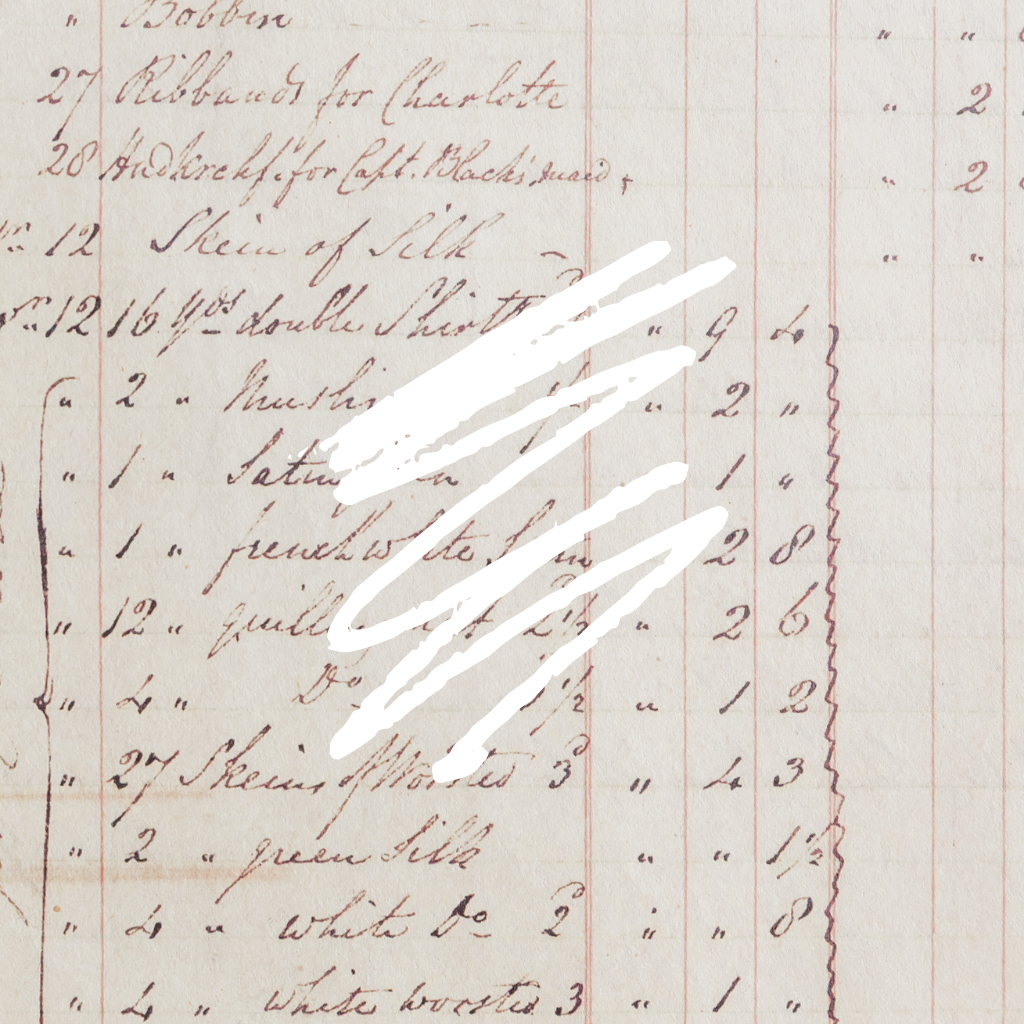 " Bobbin " "
27 Ribbands for Charlotte " 2
28 Hndkrchf. for Capt. Black's maid " 2
12 Skein of Silk " "
12 16 Yds double " 9 4
" 2 " " 2 "
" 1 " 1 "
" 1 " french white 2 8
" 12 " 2½ " 2 6
" 4 " Do 1½ " 1 2
" 27 Skeins of Worsted 3d " 4 3
" 2 " green Silk " " 1½
" 4 " white Do 2d " " 8
" 4 " white worsted 3 " 1 "